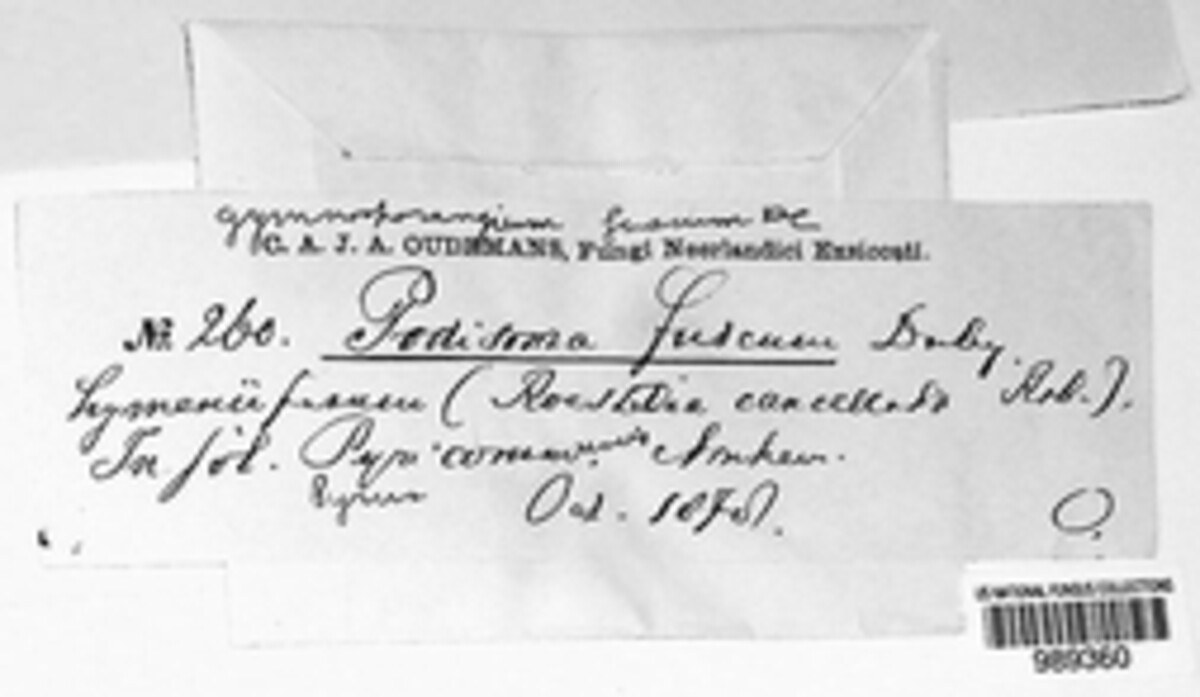 Gymnosporangium fuscum DC
C. A. J. A. OUDEMANS, Fungi Neerlandici Exsiccati.
No. 260. Podisoma fuscum Duby,
hymeniiferum (Roestelia cancellata Reb.).
In fol. Pyri communis Arnhem.
Pyrus Oct. 187
O.
US NATIONAL FUNGUS COLLECTIONS
989360